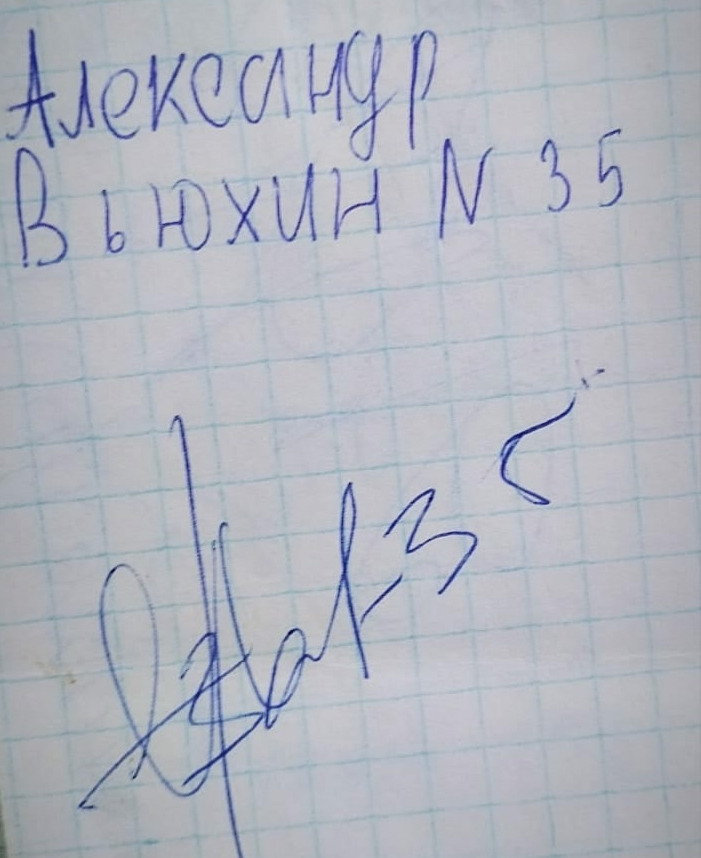 Александр
Вьюхин N 35